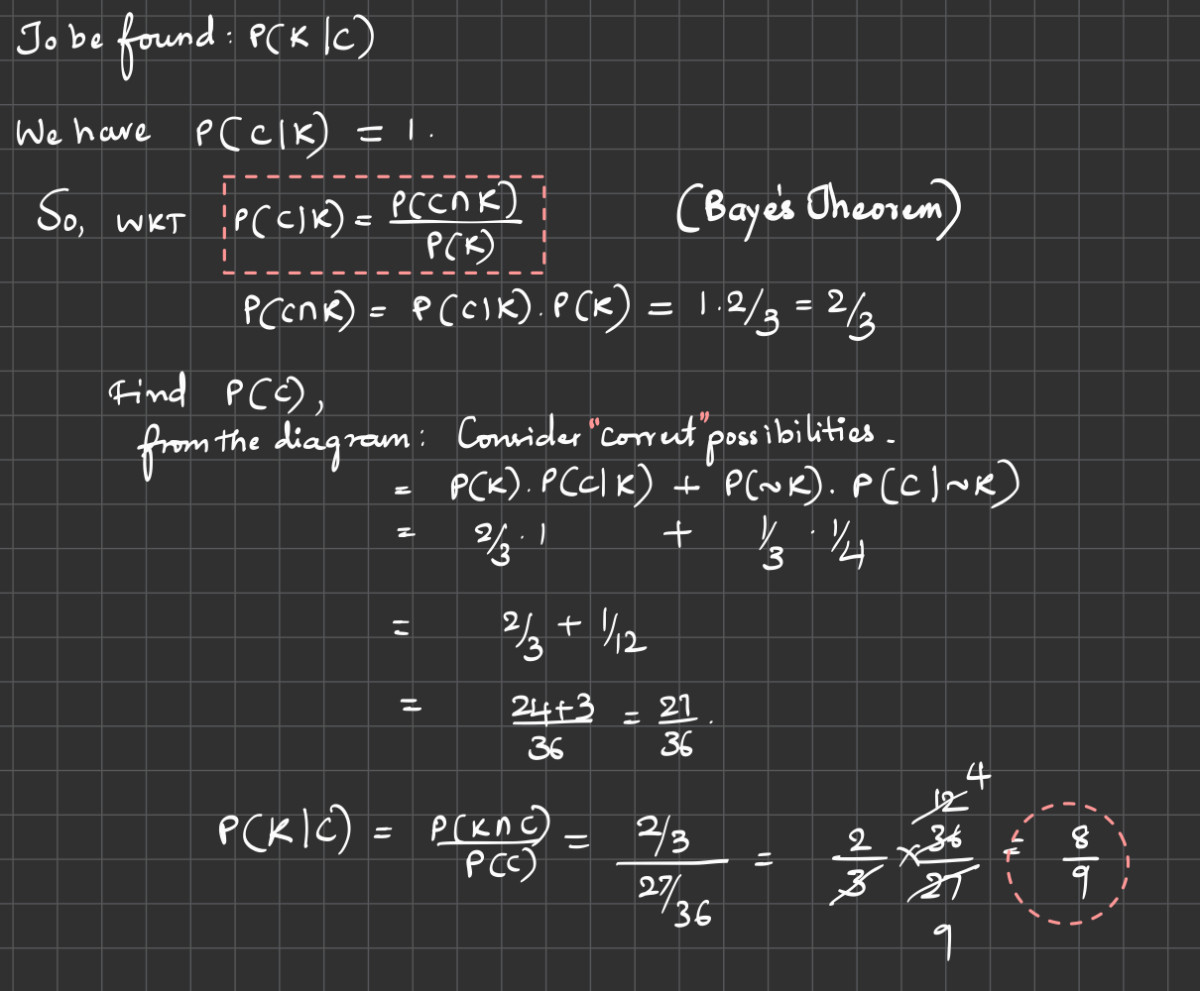 To be found: P(K|C)
We have P(C|K) = 1.
So, WKT P(C|K) = P(C∩K) / P(K) (Baye's Theorem)
P(C∩K) = P(C|K). P(K) = 1.2/3 = 2/3
Find P(C),
from the diagram: Consider "correct" possibilities.
= P(K). P(C|K) + P(~K). P(C|~K)
= 2/3 . 1 + 1/3 . 1/4
= 2/3 + 1/12
= 24+3 / 36 = 27 / 36 .
P(K|C) = P(K∩C) / P(C) = 2/3 / 27/36 = 2 / 3 × 36 / 27 12 4 9 = 8 / 9